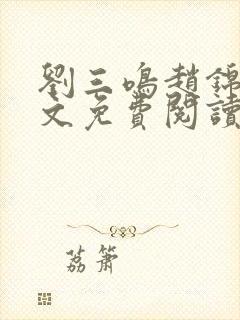 劉三鳴趙錦
文免費閱讀
荔簫